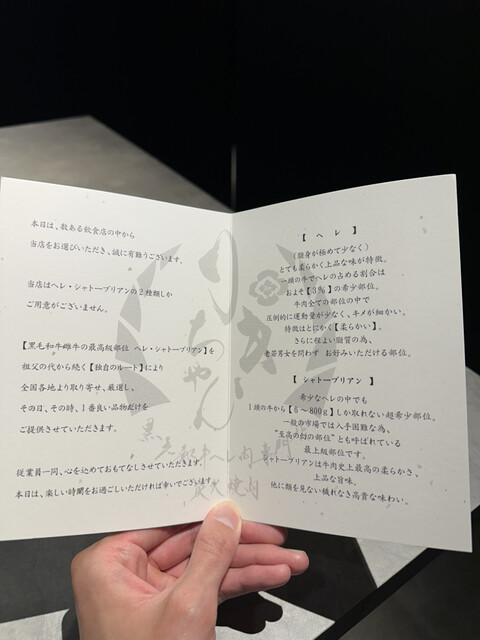 本日は、数ある飲食店の中から
当店をお選びいただき、誠に有難うございます。
当店はヘレ・シャトーブリアンの2種類しか
ご用意がございません。
【黒毛和牛雌牛の最高級部位 ヘレ・シャトーブリアン】を
祖父の代から続く【独自のルート】により
全国各地より取り寄せ、厳選し、
その日、その時、1番良い品物だけを
ご提供させていただきます。
従業員一同、心を込めておもてなしさせていただきます。
本日は、楽しい時間をお過ごしいただければ幸いでございます。
【 ヘレ 】
(脂身が極めて少なく)
とても柔らかく上品な味が特徴。
一頭の牛でヘレの占める割合は
およそ【3%】の希少部位。
牛肉全ての部位の中で
圧倒的に運動量が少なく、キメが細かい。
特徴はとにかく【柔らかい】。
さらに程よい脂質の為、
老若男女を問わず お好みいただける部位。
【 シャトーブリアン 】
希少なヘレの中でも
1頭の牛から【6～800g】しか取れない超希少部位。
一般の市場では入手困難な為、
"至高の幻の部位"とも呼ばれている
最上級部位です。
シャトーブリアンは牛肉史上最高の柔らかさ、
上品な旨味。
他に類を見ない穢れなき高貴な味わい。
りきちゃん
牛ヘレ肉専門
炭火焼肉